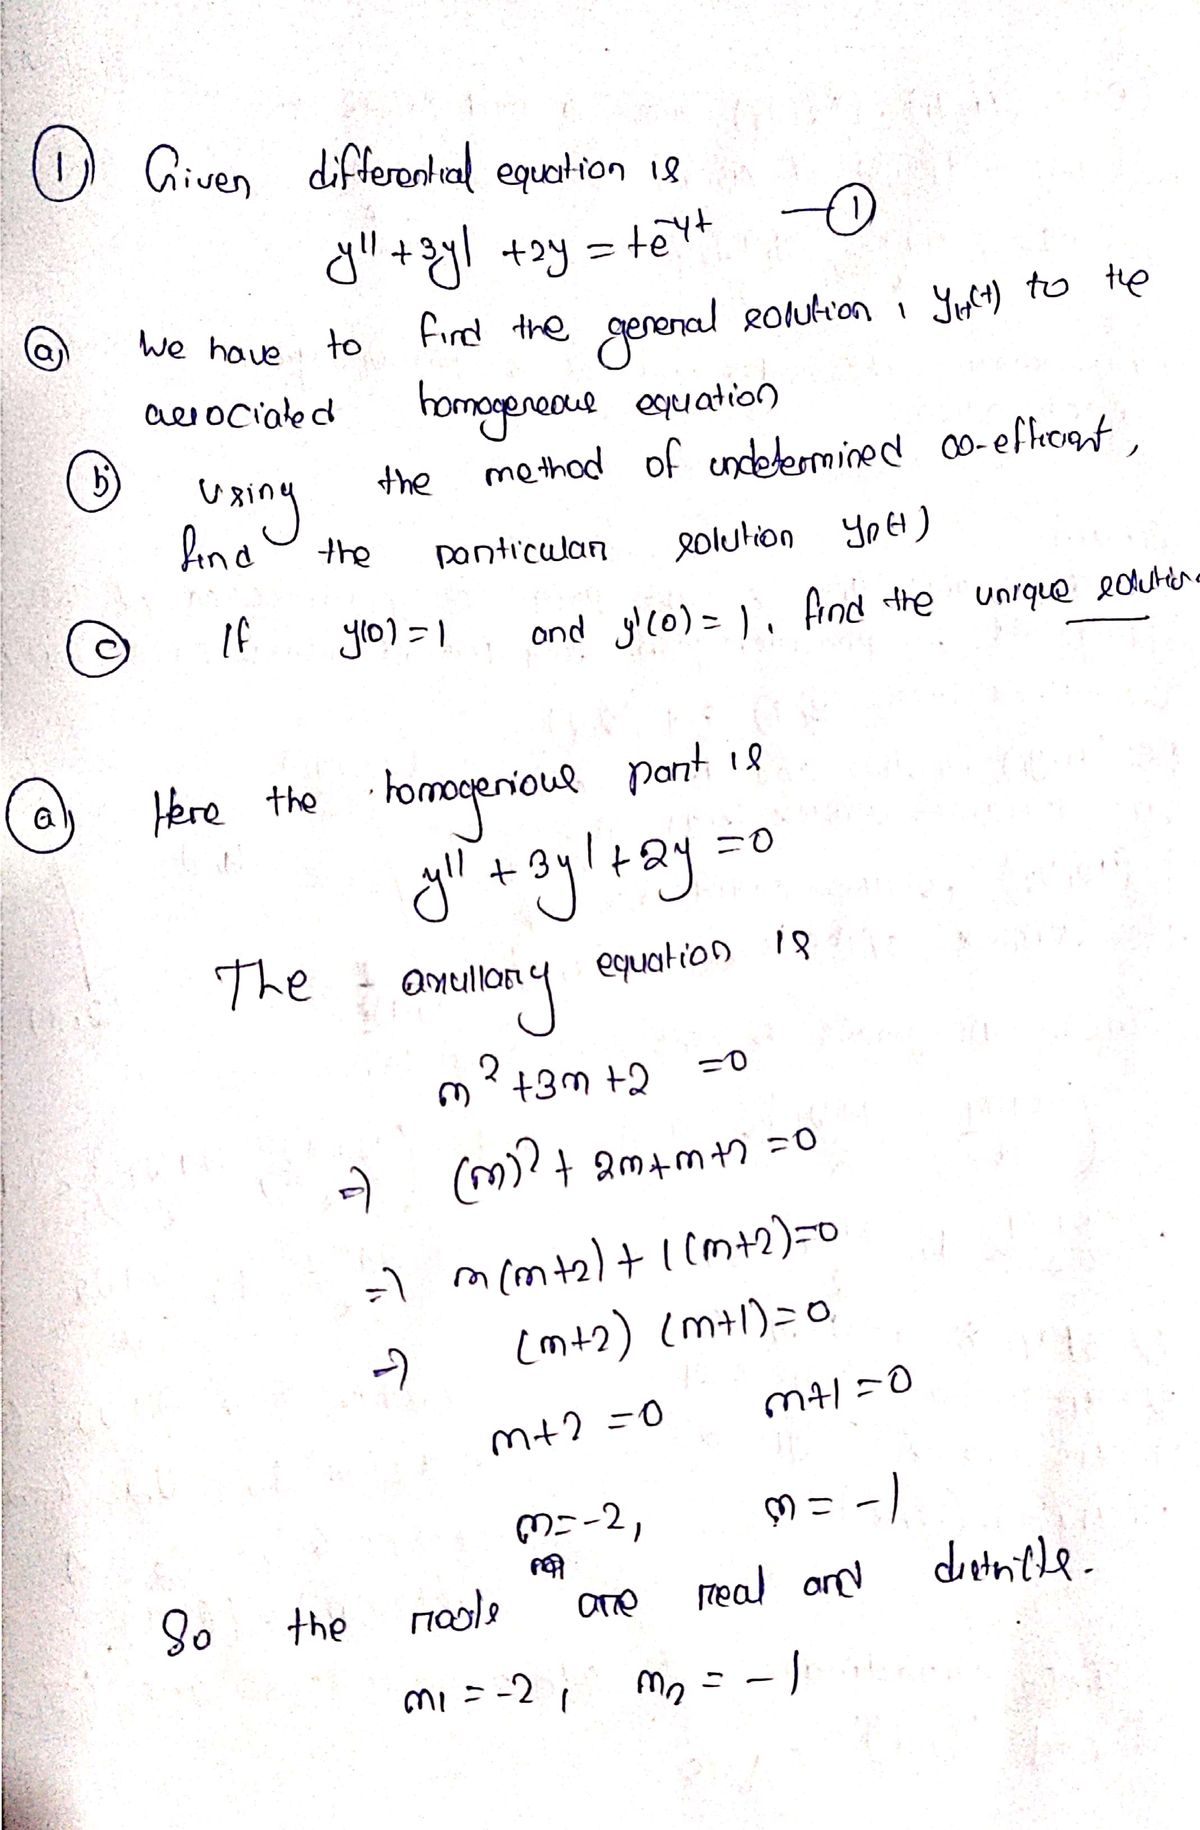 ① Given differential equation is
y'' + 3y' + 2y = te^-4t —①
ⓐ We have to find the general solution, y_H(t) to the
associated homogeneous equation
ⓑ using the method of undetermined co-efficient,
find the particular solution yp(t)
ⓒ If y(0) = 1 and y'(0) = 1, find the unique solution
ⓐ Here the homogenious part is
y'' + 3y' + 2y = 0
The auxullary equation is
m² + 3m + 2 = 0
⇒ (m)² + 2m + m + 2 = 0
⇒ m(m+2) + 1(m+2) = 0
⇒ (m+2) (m+1) = 0
m+2 = 0 m+1 = 0
m = -2, m = -1
So the roots are real and
m1 = -2, m2 = -1